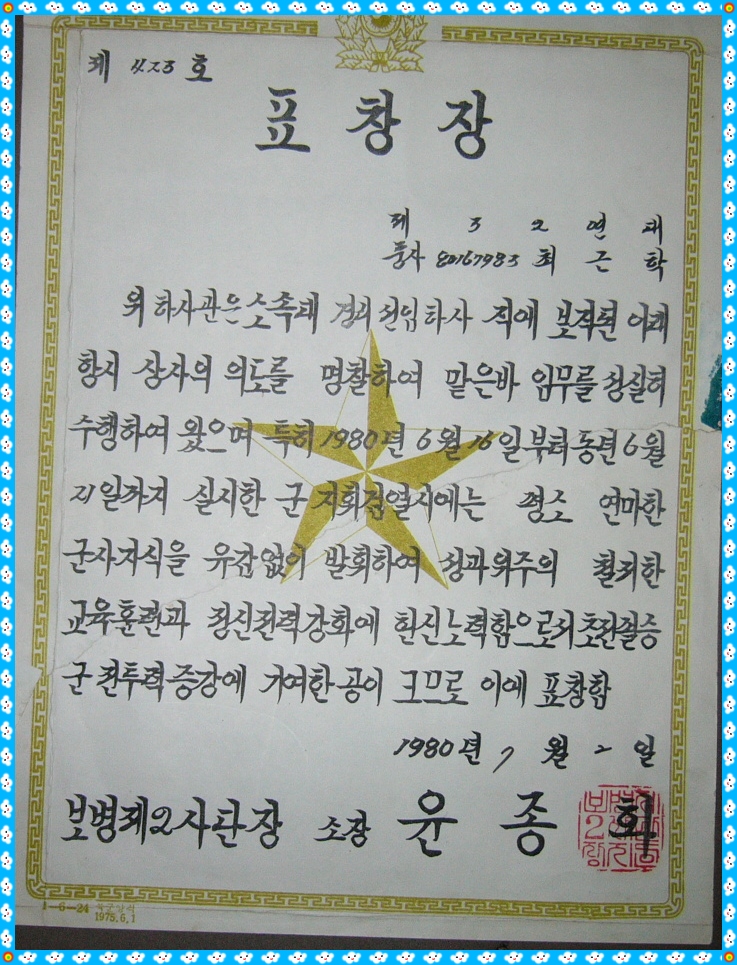 제 423 호
표 창 장
제 3 2 연 대
중사 80167983 최 근 학
위 하사관은 소속대 경비 선임하사 직에 보직된 이래
항시 상사의 의도를 명찰하여 맡은바 임무를 성실히
수행하여 왔으며 특히 1980년 6월 16일부터 동년 6월
21일까지 실시한 군 지휘검열시에는 평소 연마한
군사지식을 유감없이 발휘하여 성과위주의 철저한
교육훈련과 정신전력강화에 헌신노력함으로서 초전필승
군 전투력 증강에 기여한 공이 크므로 이에 표창함
1980년 7월 2일
보병제2사단장 소장 윤 종 희
1-6-24 육군양식
1975.6.1